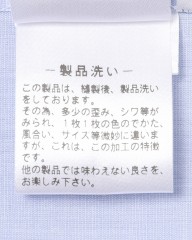 －製品洗い－
この製品は、縫製後、製品洗い
をしております。
その為、多少の歪み、シワ等が
みられ、1枚1枚の色のでかた、
風合い、サイズ等微妙に違いま
すが、これは、この加工の特徴
です。
他の製品では味わえない良さを、
お楽しみ下さい。